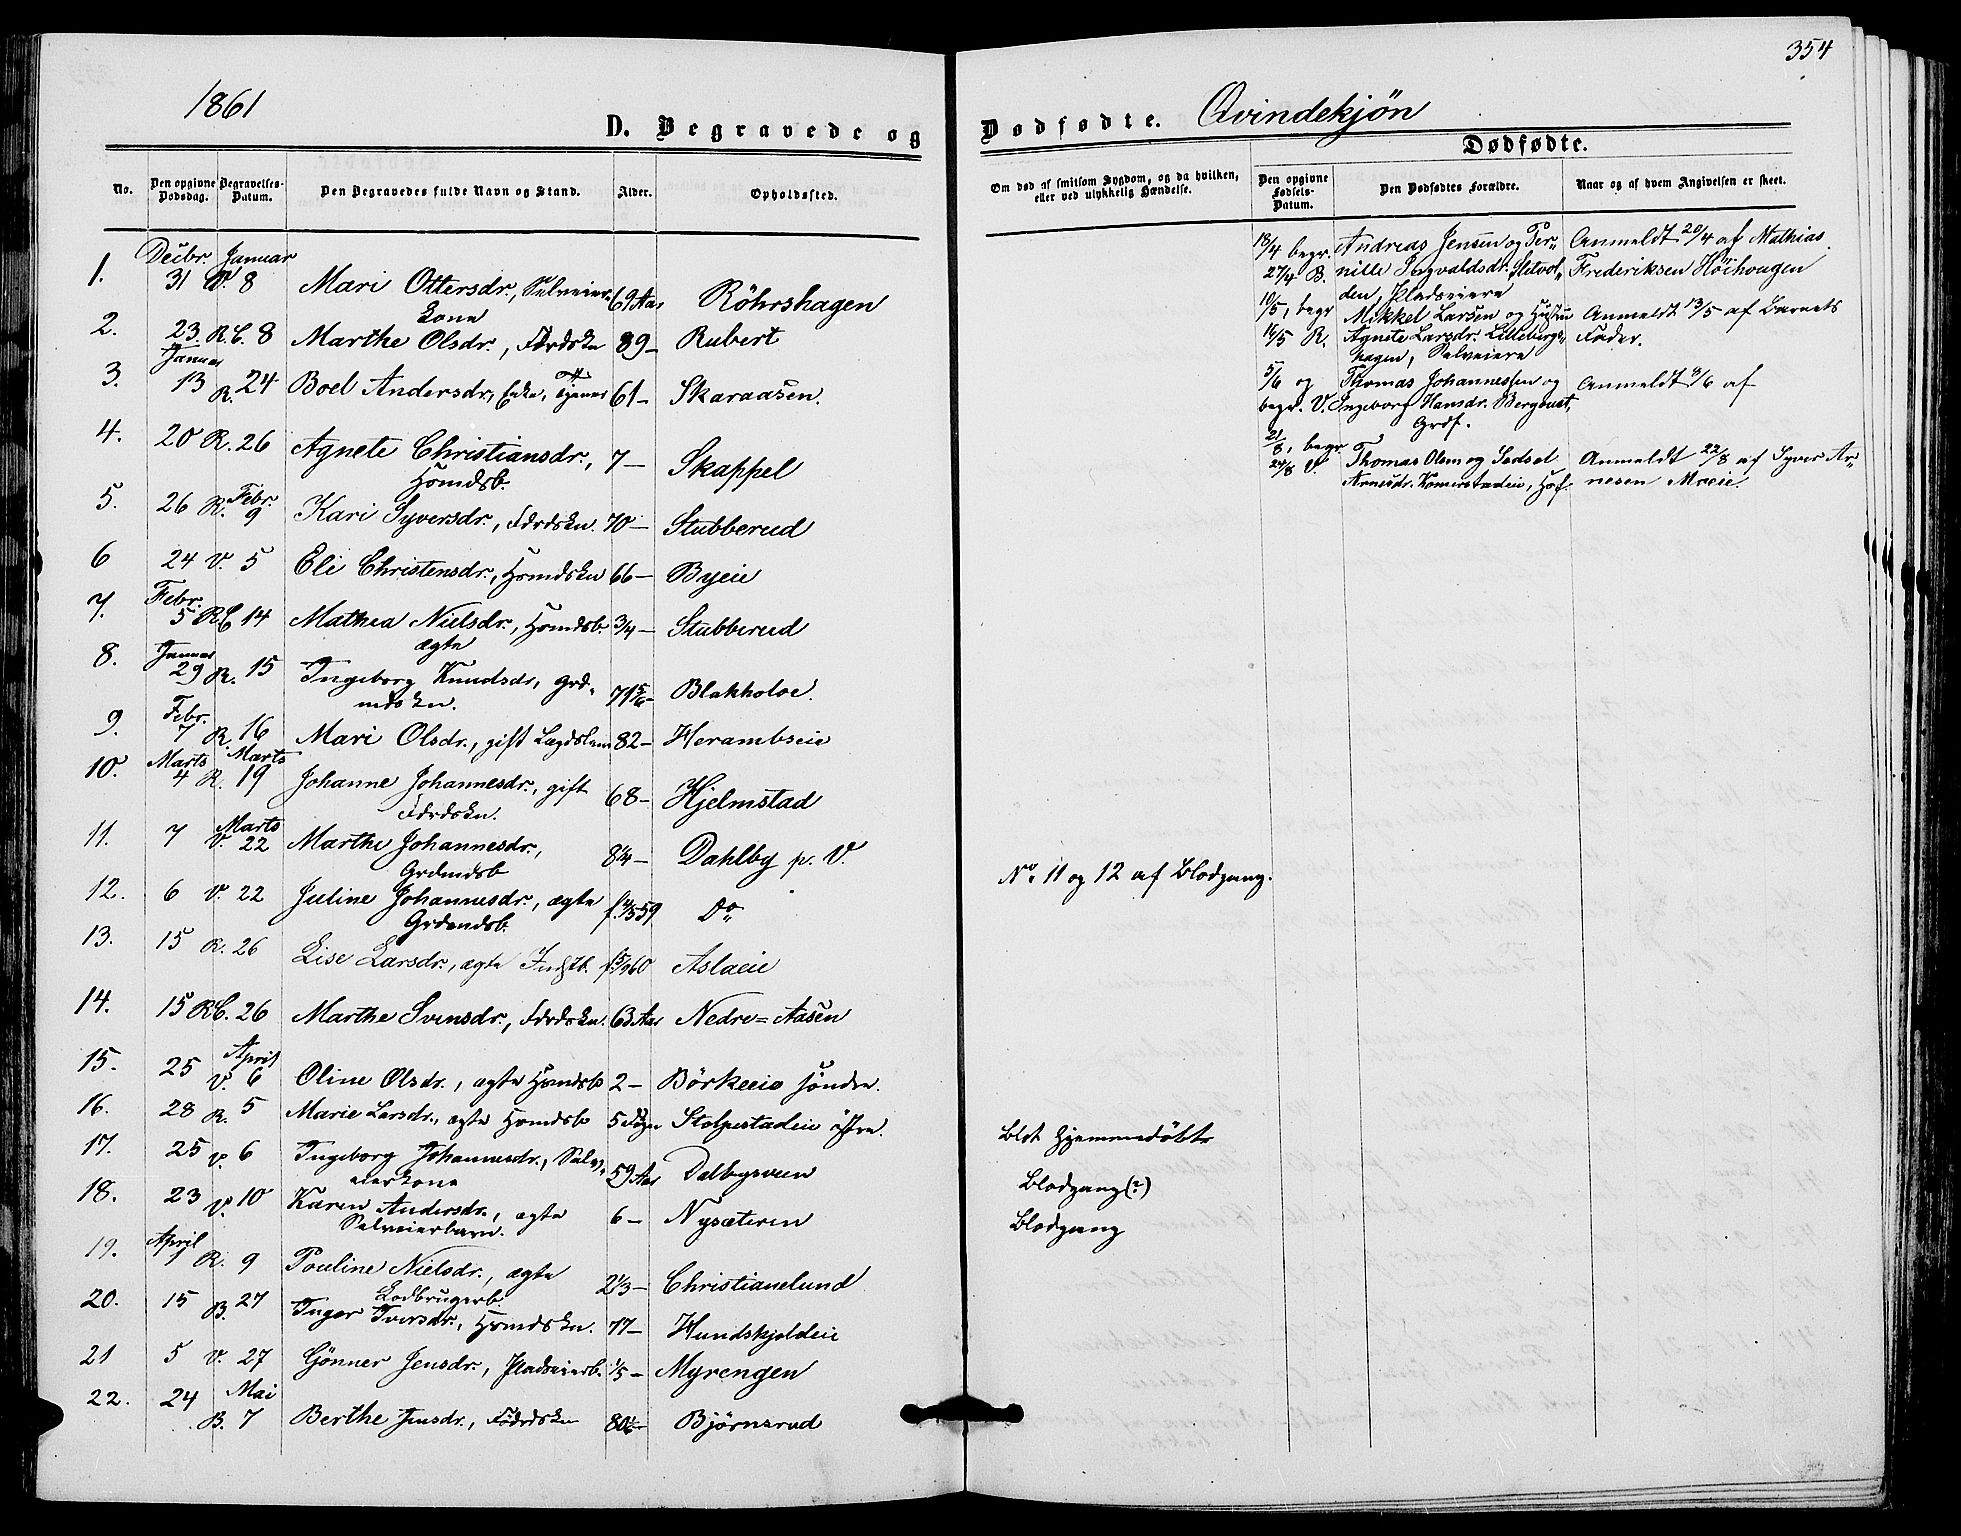 354
1861
D. Begravede og
Dødfødte. Qvindekjøn
Dødfødte.
No.
Den opgivne Dødsdag.
Begravelses-Datum.
Den Begravedes fulde Navn og Stand.
Alder.
Opholdssted.
Om død af smitsom Sygdom, og da hvilken,
eller ved ulykkelig Hændelse.
Den opgivne Fødsels-Datum.
Den Dødfødtes Forældre.
Naar og af hvem Angivelsen er skeet.
Decbr. Januar
1. 31 V. 8 Mari Ottersdr., Selveier- 69 Aar Röhrshagen
kone
2. 23. R.C. 8 Marthe Olsdr., Fdrdskn 89– Rubert
Januar
3. 13 R. 24 Boel Andersdr., Enke, 61– Skaraasen.
4. 20 R. 26 Agnete Christiansdr., 7– Skappel
Hsmdsb.
Febr.
5. 26 R. 9 Kari Syversdr., Fdrdskn. 70– Stubberud
6 24 V. 5 Eli Christensdr., Hsmdskn 66– Byeie
Febr.
7. 5 RC 14 Mathea Nielsdr., Hsmdsb. 3/4– Stubberud
ægte
Januar
8. 29 R. 15 Ingeborg Knudsdr., Grd- 71 5/6– Blakholoe.
mdskn.
Febr.
9. 7 R. 16 Mari Olsdr., gift Lægdslem 82– Herambseie
Marts Marts
10. 4 R. 19 Johanne Johannesdr., gift 68– Hjelmstad
Fdrdskn.
Marts
11. 7 V. 22 Marthe Johannesdr., 8 1/4– Dahlby p. V.
Grdmdsb
12. 6 V. 22 Juline Johannesdr., ægte 59 Do
Grdmdsb.
13. 15 R. 26 Lise Larsdr., ægte Indstb. 60 Aslaeie
14. 15 RC. 26 Marthe Svensdr., Fdrdskn. 63 Aar Nedre=Aasen
April
15. 25 V. 6 Oline Olsdr., ægte Hsmdsb 2– Börkeeie söndre.
16. 28 R. 5 Marie Larsdr., ægte Hsmdsb 5 Dage Stolpestadeie östre.
17. 25 V. 6 Ingeborg Johannesdr., Selv- 59 Aar Dalbysveen
eierkone
18. 23 V. 10 Karen Andersdr., ægte 6– Nysæteren
Selveierbarn.
April
19. 1 R. 9 Pouline Nielsdr., ægte 2 1/3– Christianelund
Lodbrugerb.
20. 15 B. 27 Inger Iversdr., Hsmdskn. 77– Hundskjoldeie
21 5 V. 27 Gönner Jensdr., Pladseierb. 1/5– Myrengen
Mai
22. 24 B. 7 Berthe Jensdr., Födrdskn 80 Björnsrud
No. 11 og 12 af Blodgang.
Blot hjemmedöbt
Blodgang (?)
Blodgang
18/4 begr. Andreas Jensen og Per- Anmeldt 20/4 af Mathias
27/4 B. nille Ingvaldsdr. Sletvol- Frederiksen Höihvagen
den, Pladseiere
10/5, begr Mikkel Larsen og Hustru Anmeldt 13/5 af Barnets
16/5 R. Agnete Larsdr. Lilleberge- Fader.
hagen, Selveiere
5/6 og Thomas Johannessen og Anmeldt 9/6 af
begr. V. Ingeborg Hansdr. Bergoust,
Grdf.
21/8, begr Thomas Olsen og Sedsel Anmeldt 22/8 af Syver Ar-
24/8 V. Arnesdr. Komerstadeie, Hsf. nesen Moeie.